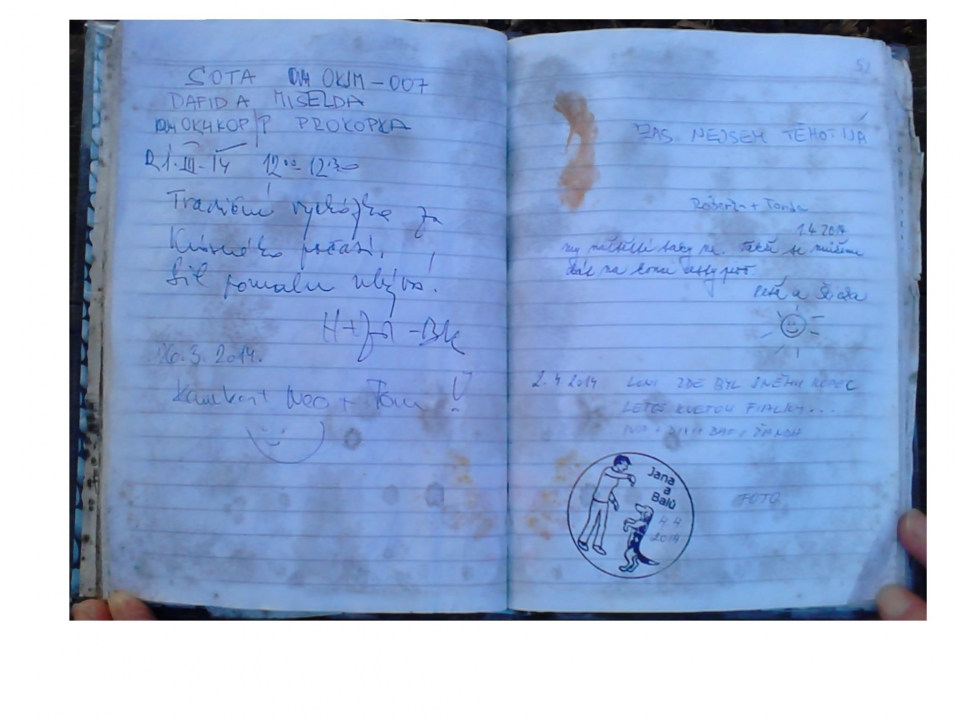 SOTA OK/JM-007
DAFID A MISELDA
OK4KOP/P PROKOPKA
21.III.14 12:00 - 12:30
Tradiční vycházka za
krásného počasí,
sil pomalu ubývá!
26.3.2014.
Neo + Tom !
52
ZAS NEJSEM TĚHOTNÁ
+ Tonda
1.4.2014
my naštěstí taky ne. Takže se můžem
dál na konci cesty
Peťa a
2.4.2014 LONI ZDE BYL SNĚHU KOPEC
LETOS KVETOU FIALKY...
Jana
a
Balů
4.4.
2014
FOTO